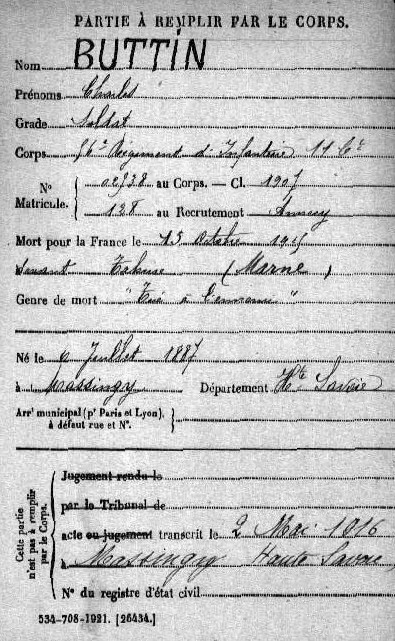 PARTIE À REMPLIR PAR LE CORPS.
Nom BUTTIN
Prénoms Charles
Grade Soldat
Corps Régiment d'Infanterie 11 Cie
N° Matricule. { 02738 au Corps. — Cl. 1907
128 au Recrutement Annecy
Mort pour la France le 15 Octobre 1915
devant Tahure (Marne)
Genre de mort "Tué à l'ennemi"
Né le 6 Juillet 1887
à Massingy Département Hte Savoie
Arrt municipal (pr Paris et Lyon),
à défaut rue et N°.
Cette partie n'est pas à remplir par le Corps.
Jugement rendu le
par le Tribunal de
acte ou jugement transcrit le 2 Mai 1916
à Massingy Haute Savoie
N° du registre d'état civil
534-708-1921. [26434.]